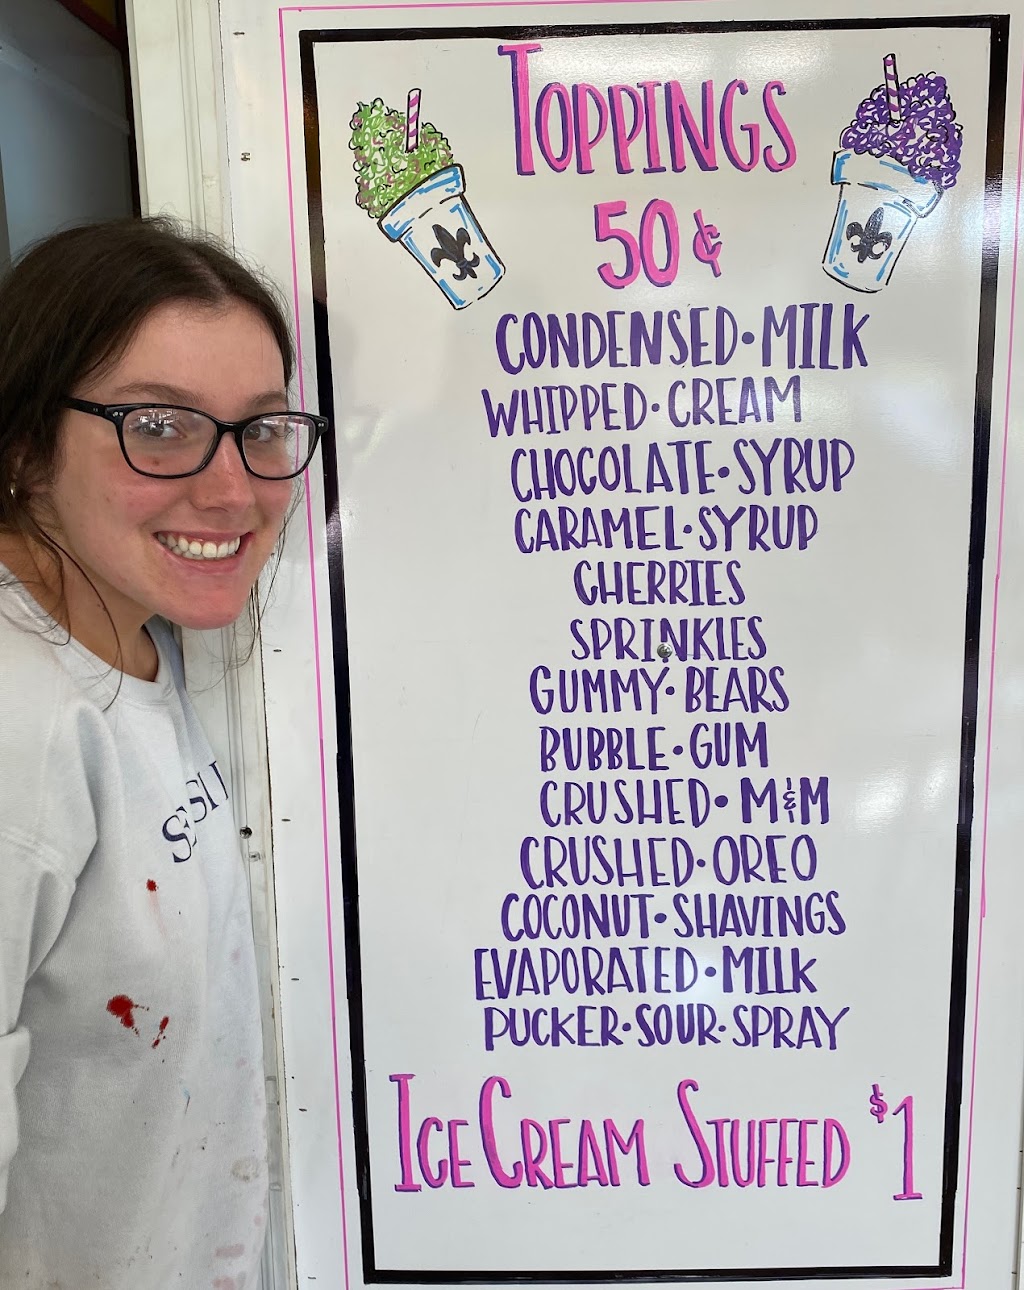 TOPPINGS
50¢
CONDENSED•MILK
WHIPPED•CREAM
CHOCOLATE•SYRUP
CARAMEL•SYRUP
CHERRIES
SPRINKLES
GUMMY•BEARS
BUBBLE•GUM
CRUSHED•M&M
CRUSHED•OREO
COCONUT•SHAVINGS
EVAPORATED•MILK
PUCKER•SOUR•SPRAY
ICE CREAM STUFFED $1